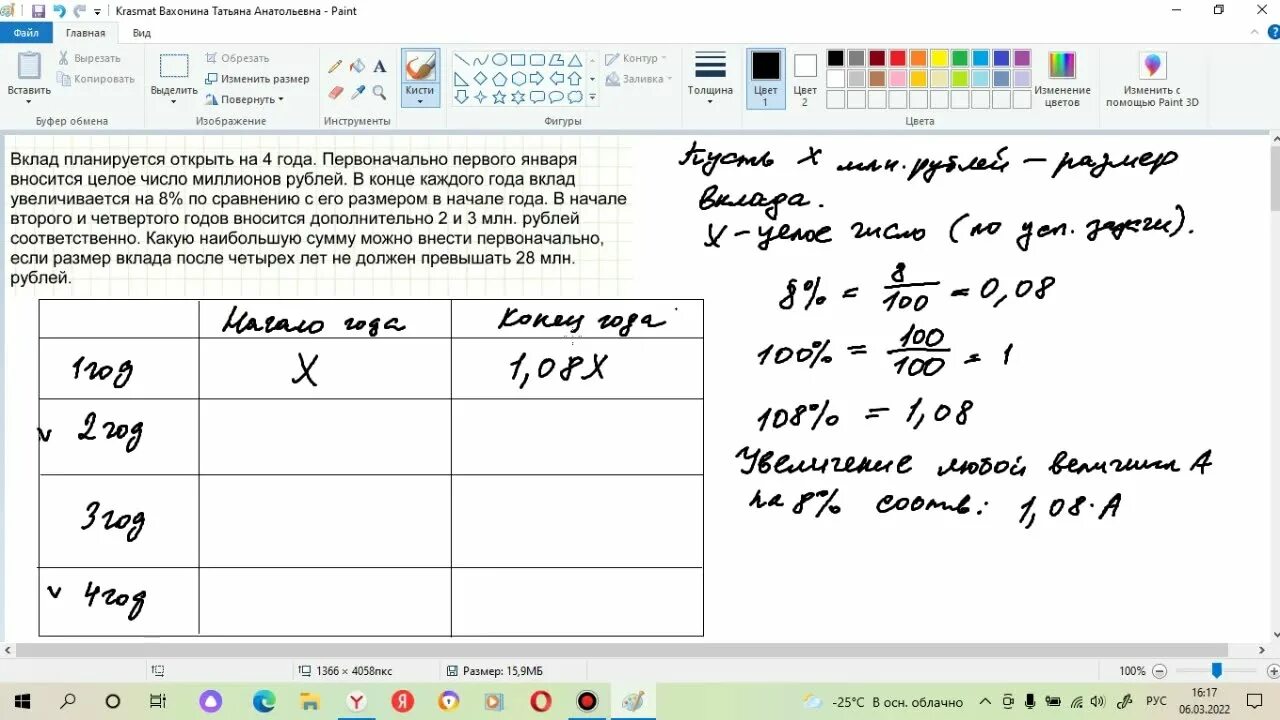 Krasmat Вахонина Татьяна Анатольевна - Paint
Файл
Главная
Вид
Вставить
Вырезать
Копировать
Буфер обмена
Выделить
Обрезать
Изменить размер
Повернуть
Изображение
A
Инструменты
Кисти
Контур
Заливка
Фигуры
Толщина
Цвет 1
Цвет 2
Изменение цветов
Цвета
Изменить с помощью Paint 3D
Вклад планируется открыть на 4 года. Первоначально первого января
вносится целое число миллионов рублей. В конце каждого года вклад
увеличивается на 8% по сравнению с его размером в начале года. В начале
второго и четвертого годов вносится дополнительно 2 и 3 млн. рублей
соответственно. Какую наибольшую сумму можно внести первоначально,
если размер вклада после четырех лет не должен превышать 28 млн.
рублей.
Начало года Конец года
1 год X 1,08X
v 2 год
3 год
v 4 год
Пусть X млн. рублей – размер
вклада.
X – целое число (по усл. задачи).
8% = 8/100 = 0,08
100% = 100/100 = 1
108% = 1,08
Увеличение любой величины A
на 8% соотв: 1,08·A
1366 × 4058пкс
Размер: 15,9МБ
100%
-25°C В осн. облачно
РУС
16:17
06.03.2022